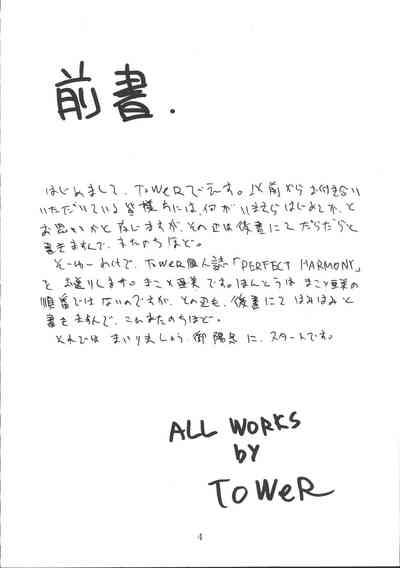 前書.
はじめまして、ToWeRでございます。以前からお付き合い
いただいている皆様方には、何がいまさらはじめてか、と
お思いかと存じますが、その辺は後書にてだらだらと
書きますんで、またのちほど。
そーゆーわけで、ToWeR個人誌「PERFECT HARMONY」
をお送りします。まこと亜美です。ほんとうはまこと亜美の
順番ではないのですが、その辺も、後書にて
書きますんで、これまたのちほど。
それではまいりましょう。御陽気に、スタートです。
ALL WORKS
by
ToWeR
4